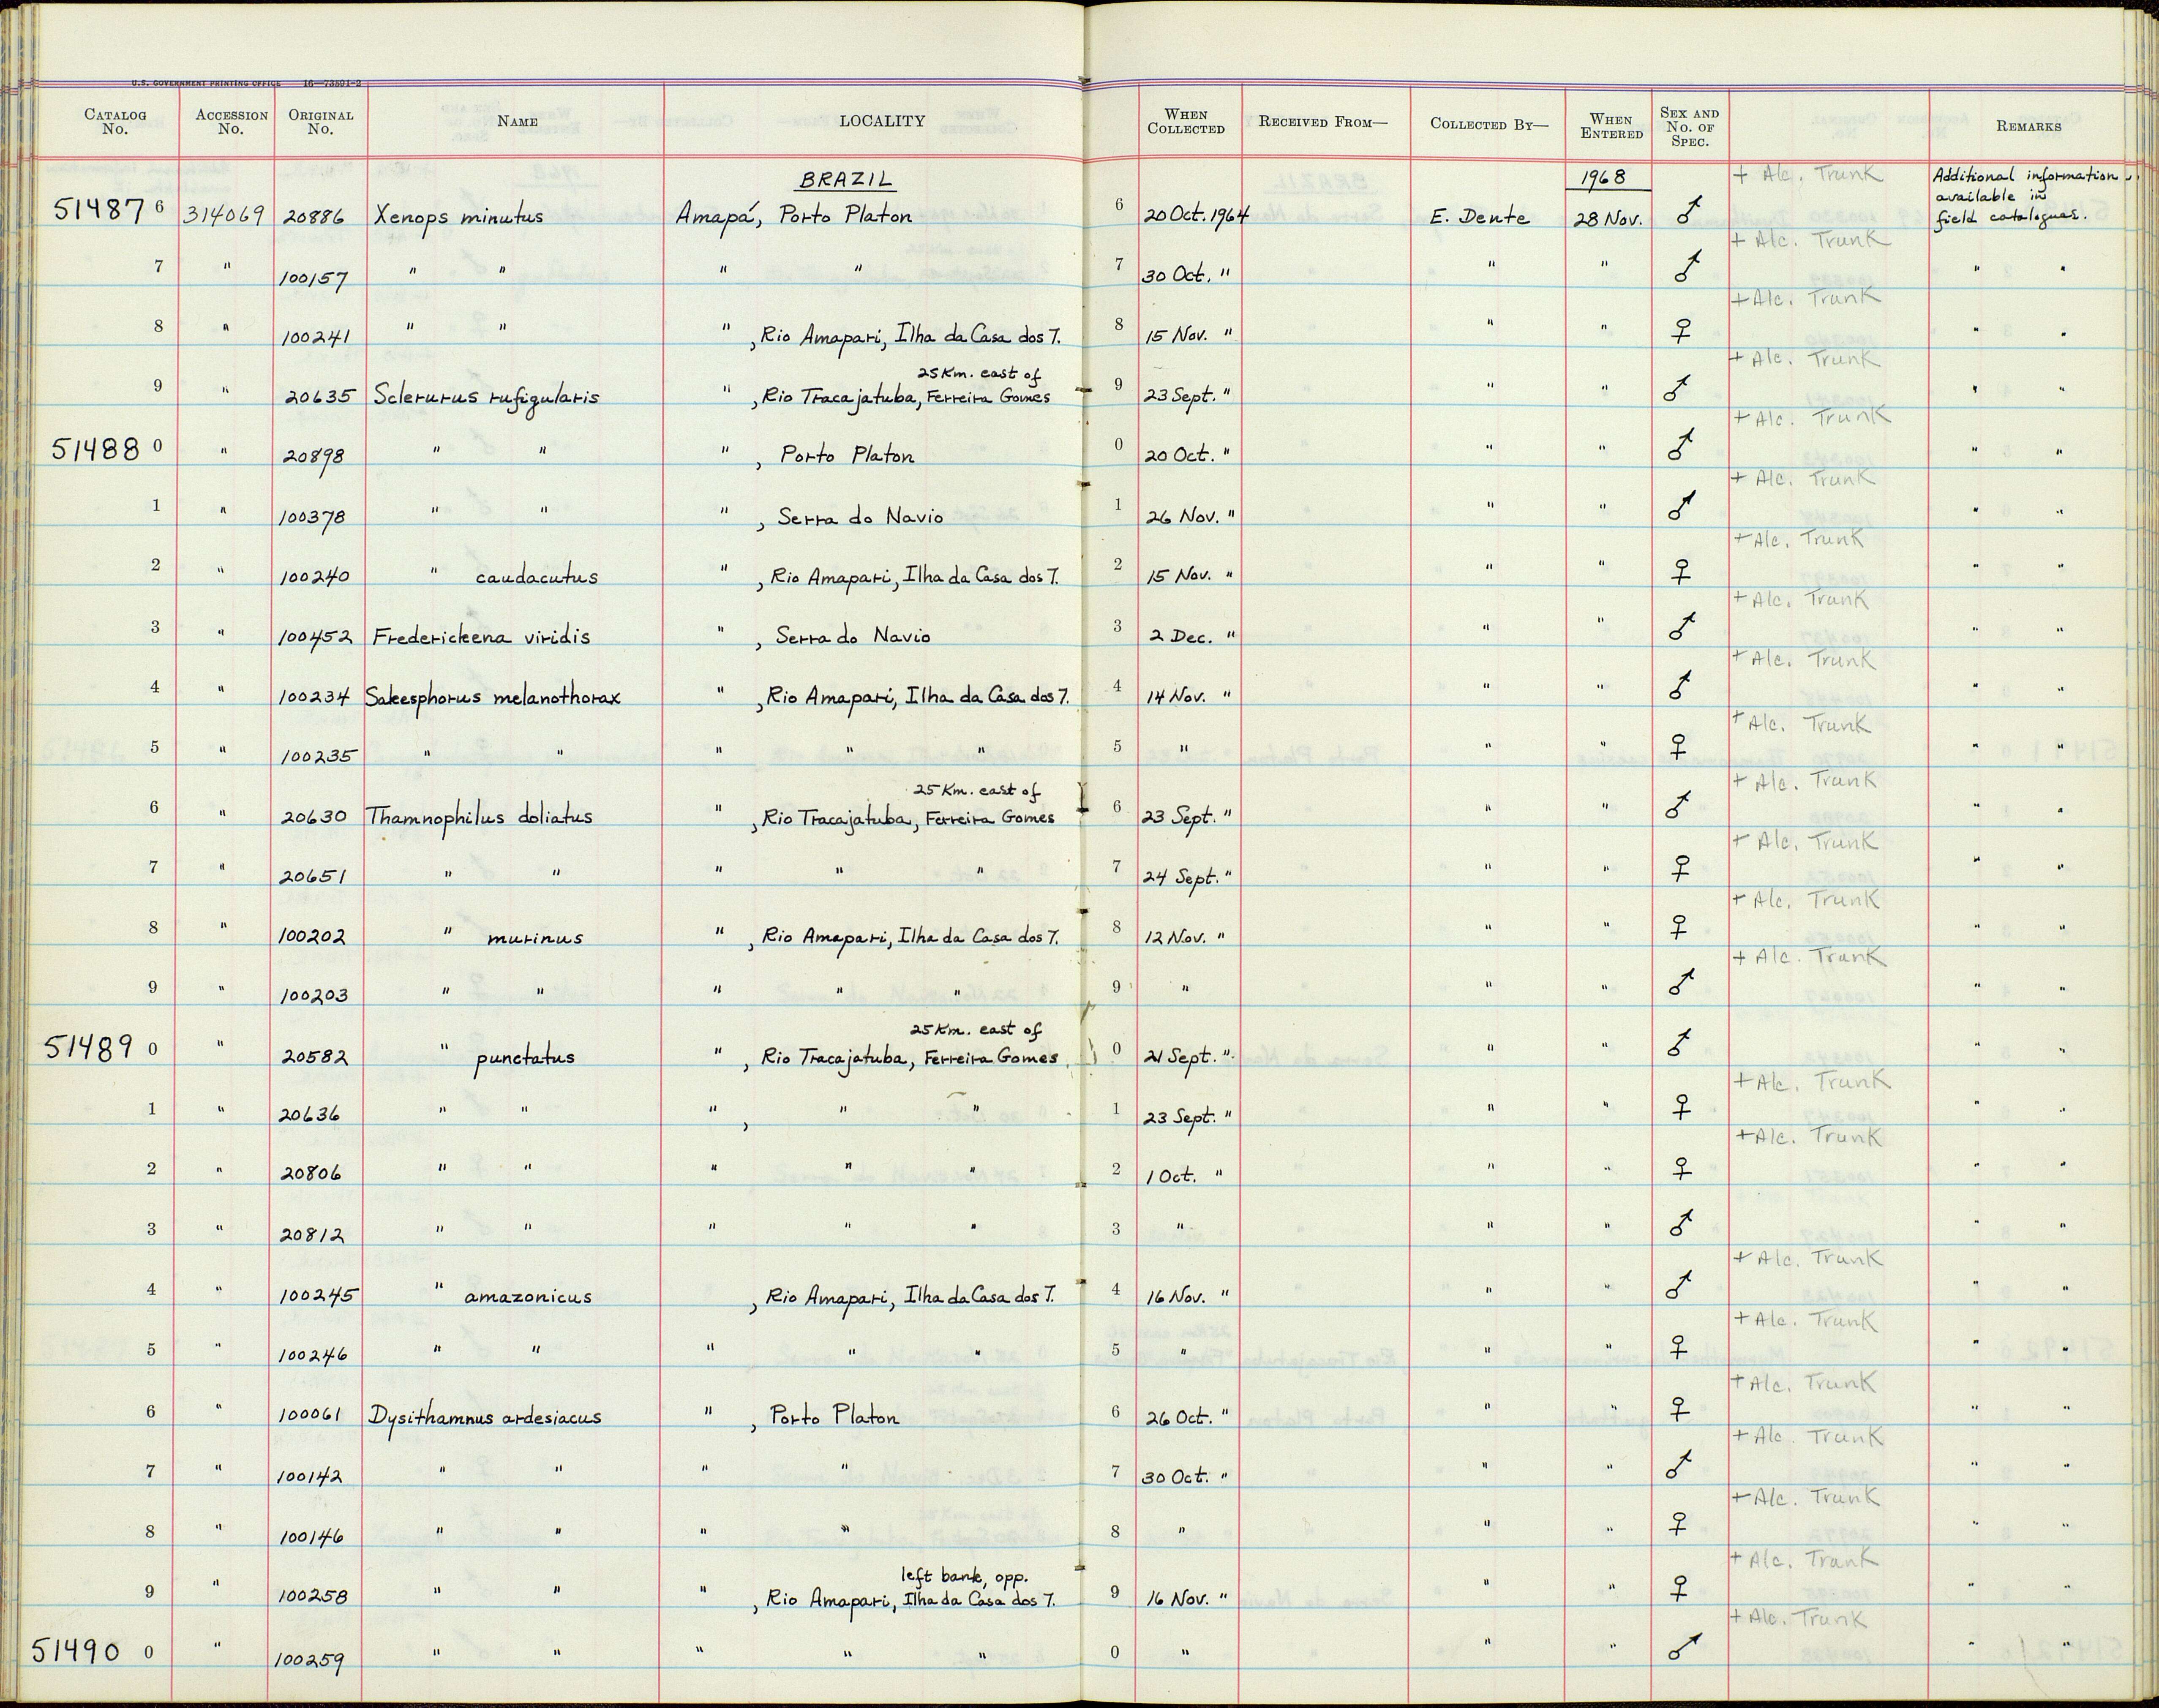 U.S. GOVERNMENT PRINTING OFFICE 16—73591-2
CATALOG No. ACCESSION No. ORIGINAL No. NAME LOCALITY WHEN COLLECTED RECEIVED FROM— COLLECTED BY— WHEN ENTERED SEX AND No. OF SPEC. REMARKS
BRAZIL 1968 + Alc. Trunk Additional information available in field catalogues.
51487 6 314069 20886 Xenops minutus Amapá, Porto Platon 6 20 Oct. 1964 E. Dente 28 Nov. ♂
+ Alc. Trunk
7 " 100157 " " " " 7 30 Oct. " " " ♂ " "
+ Alc. Trunk
8 " 100241 " " " , Rio Amapari, Ilha da Casa dos T. 8 15 Nov. " " " ♀ " "
+ Alc. Trunk
25 Km. east of
9 " 20635 Sclerurus rufigularis " , Rio Tracajatuba, Ferreira Gomes 9 23 Sept. " " " ♂ " "
+ Alc. Trunk
51488 0 " 20898 " " " , Porto Platon 0 20 Oct. " " " ♂ " "
+ Alc. Trunk
1 " 100378 " " " , Serra do Navio 1 26 Nov. " " " ♂ " "
+ Alc. Trunk
2 " 100240 " caudacutus " , Rio Amapari, Ilha da Casa dos T. 2 15 Nov. " " " ♀ " "
+ Alc. Trunk
3 " 100452 Frederickena viridis " , Serra do Navio 3 2 Dec. " " " ♂ " "
+ Alc. Trunk
4 " 100234 Sakesphorus melanothorax " , Rio Amapari, Ilha da Casa dos T. 4 14 Nov. " " " ♂ " "
+ Alc. Trunk
5 " 100235 " " " " " 5 " " " ♀ " "
+ Alc. Trunk
25 Km. east of
6 " 20630 Thamnophilus doliatus " , Rio Tracajatuba, Ferreira Gomes 6 23 Sept. " " " ♂ " "
+ Alc. Trunk
7 " 20651 " " " " " 7 24 Sept. " " " ♀ " "
+ Alc. Trunk
8 " 100202 " murinus " , Rio Amapari, Ilha da Casa dos T. 8 12 Nov. " " " ♀ " "
+ Alc. Trunk
9 " 100203 " " " " " 9 " " " ♂ " "
25 Km. east of
51489 0 " 20582 " punctatus " , Rio Tracajatuba, Ferreira Gomes 0 21 Sept. " " " ♂ " "
+ Alc. Trunk
1 " 20636 " " " , " " 1 23 Sept. " " " ♀ " "
+ Alc. Trunk
2 " 20806 " " " " " 2 1 Oct. " " " ♀ " "
3 " 20812 " " " " " 3 " " " ♂ " "
+ Alc. Trunk
4 " 100245 " amazonicus , Rio Amapari, Ilha da Casa dos T. 4 16 Nov. " " " ♂ " "
+ Alc. Trunk
5 " 100246 " " " " " 5 " " " ♀ " "
+ Alc. Trunk
6 " 100061 Dysithamnus ardesiacus " , Porto Platon 6 26 Oct. " " " ♀ " "
+ Alc. Trunk
7 " 100142 " " " " 7 30 Oct. " " " ♂ " "
+ Alc. Trunk
8 " 100146 " " " " 8 " " " ♀ " "
+ Alc. Trunk
left bank, opp.
9 " 100258 " " " , Rio Amapari, Ilha da Casa dos T. 9 16 Nov. " " " ♀ " "
+ Alc. Trunk
51490 0 " 100259 " " " " " 0 " " " ♂ " "